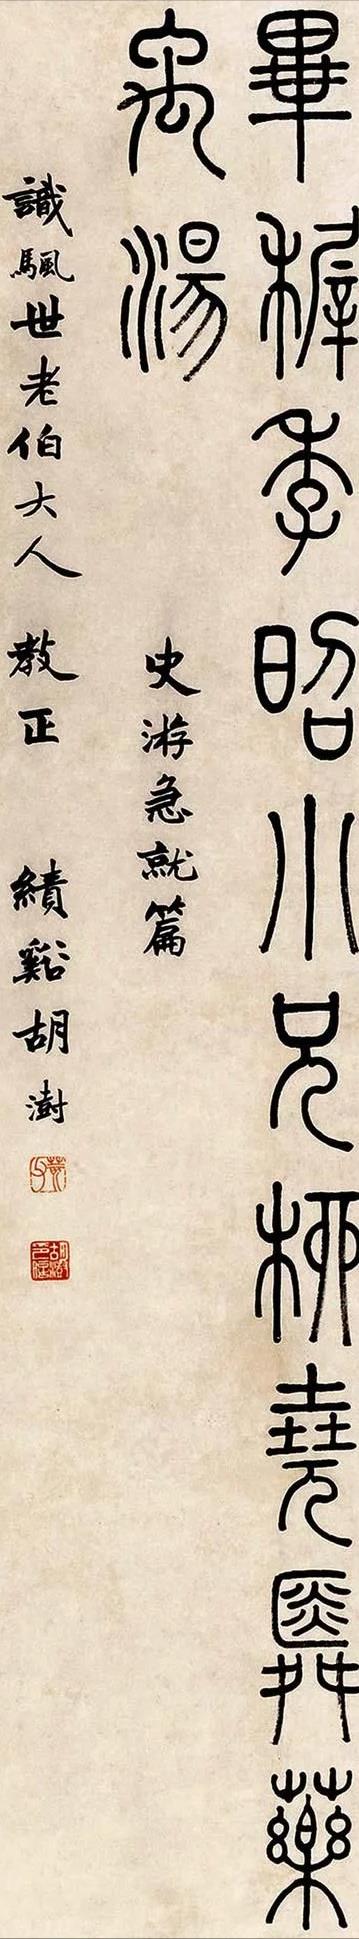 畢稺季昭小兄柳堯舜藥
禹湯
史游急就篇
識颿世老伯大人 教正 績谿胡澍